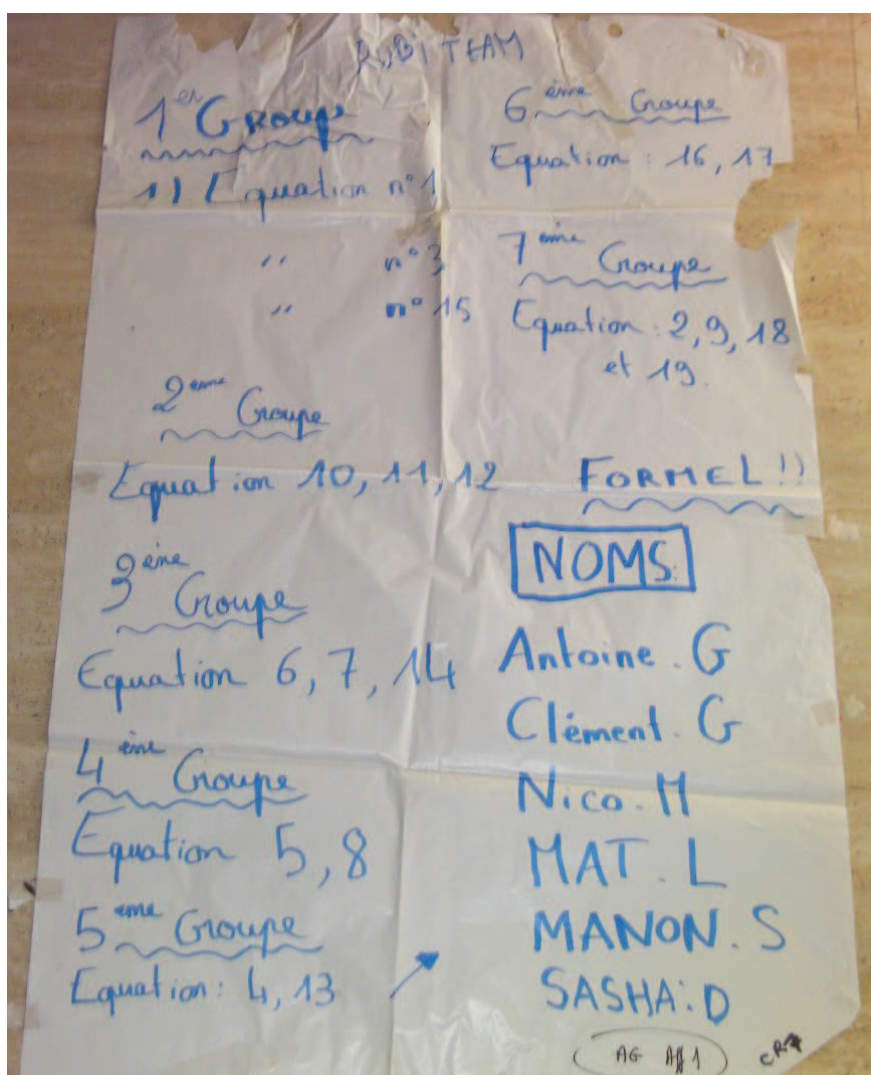 RUBI TEAM
1er Groupe
1) Equation n°1
" n°3
" n°15
2ème Groupe
Equation 10, 11, 12
3ème Groupe
Equation 6, 7, 14
4ème Groupe
Equation 5, 8
5ème Groupe
Equation : 4, 13
6ème Groupe
Equation : 16, 17
7ème Groupe
Equation : 2, 9, 18
et 19.
FORMEL !!
NOMS:
Antoine . G
Clément . G
Nico . M
MAT . L
MANON . S
SASHA . D
AG
CR7